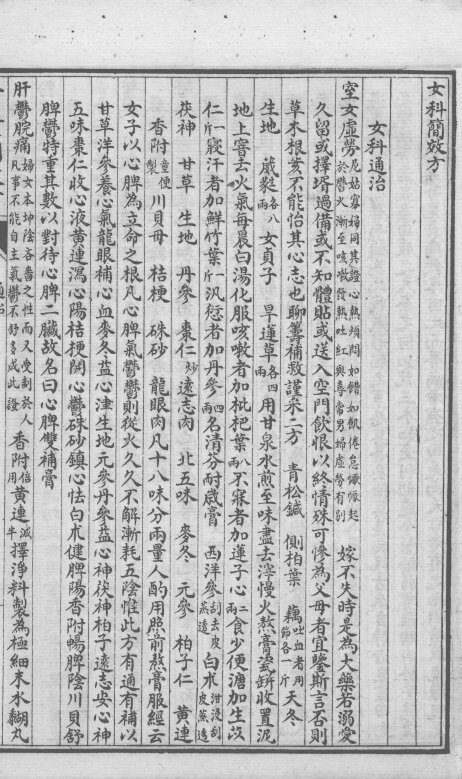 女科簡效方
女科通治
室女虛勞尼姑寡婦同其證心熱煩悶如錯如飢倦怠懶懶起於鬱火漸至咳嗽發熱吐紅與尋常男婦虛勞有別 嫁不失時是為大藥若溺愛
久留或擇壻過備或不知體貼或送入空門飲恨以終情殊可慘為父母者宜鑒斯言否則
草木根荄不能怡其心志也聊籌補救謹采二方 青松鍼 側柏葉 藕吐血者用節各一斤 天冬
生地 葳蕤各八兩 女貞子 旱蓮草各四兩 用甘泉水煎至味盡去滓慢火熬膏瓷缾收置泥
地上窨去火氣每晨白湯化服咳嗽者加枇杷葉八兩 不寐者加蓮子心二兩 食少便溏加生苡
仁一斤 寢汗者加鮮竹葉一斤 汎愆者加丹參四兩 名清芬耐歲膏 西洋參刮去皮蒸透 白朮泔浸刮皮蒸透
茯神 甘草 生地 丹參 棗仁炒 遠志肉 北五味 麥冬 元參 柏子仁 黃連
香附童便製 川貝母 桔梗 硃砂 龍眼肉凡十八味分兩量人酌用照前熬膏服經云
女子以心脾為立命之根凡心脾氣鬱鬱則從火久久不解漸耗五陰惟此方有通有補以
甘草洋參養心氣龍眼補心血麥冬益心津生地元參丹參益心神茯神柏子遠志安心神
五味棗仁收心液黃連瀉心陽桔梗開心鬱硃砂鎮心怯白朮健脾陽香附暢脾陰川貝舒
脾鬱特重其數以對待心脾二臟故名曰心脾雙補膏
肝鬱脘痛婦女本坤陰各嗇之性而又受制於人凡事不能自主氣鬱不舒多成此證 香附倍用 黃連減半 擇淨料製為極細末水餬丸